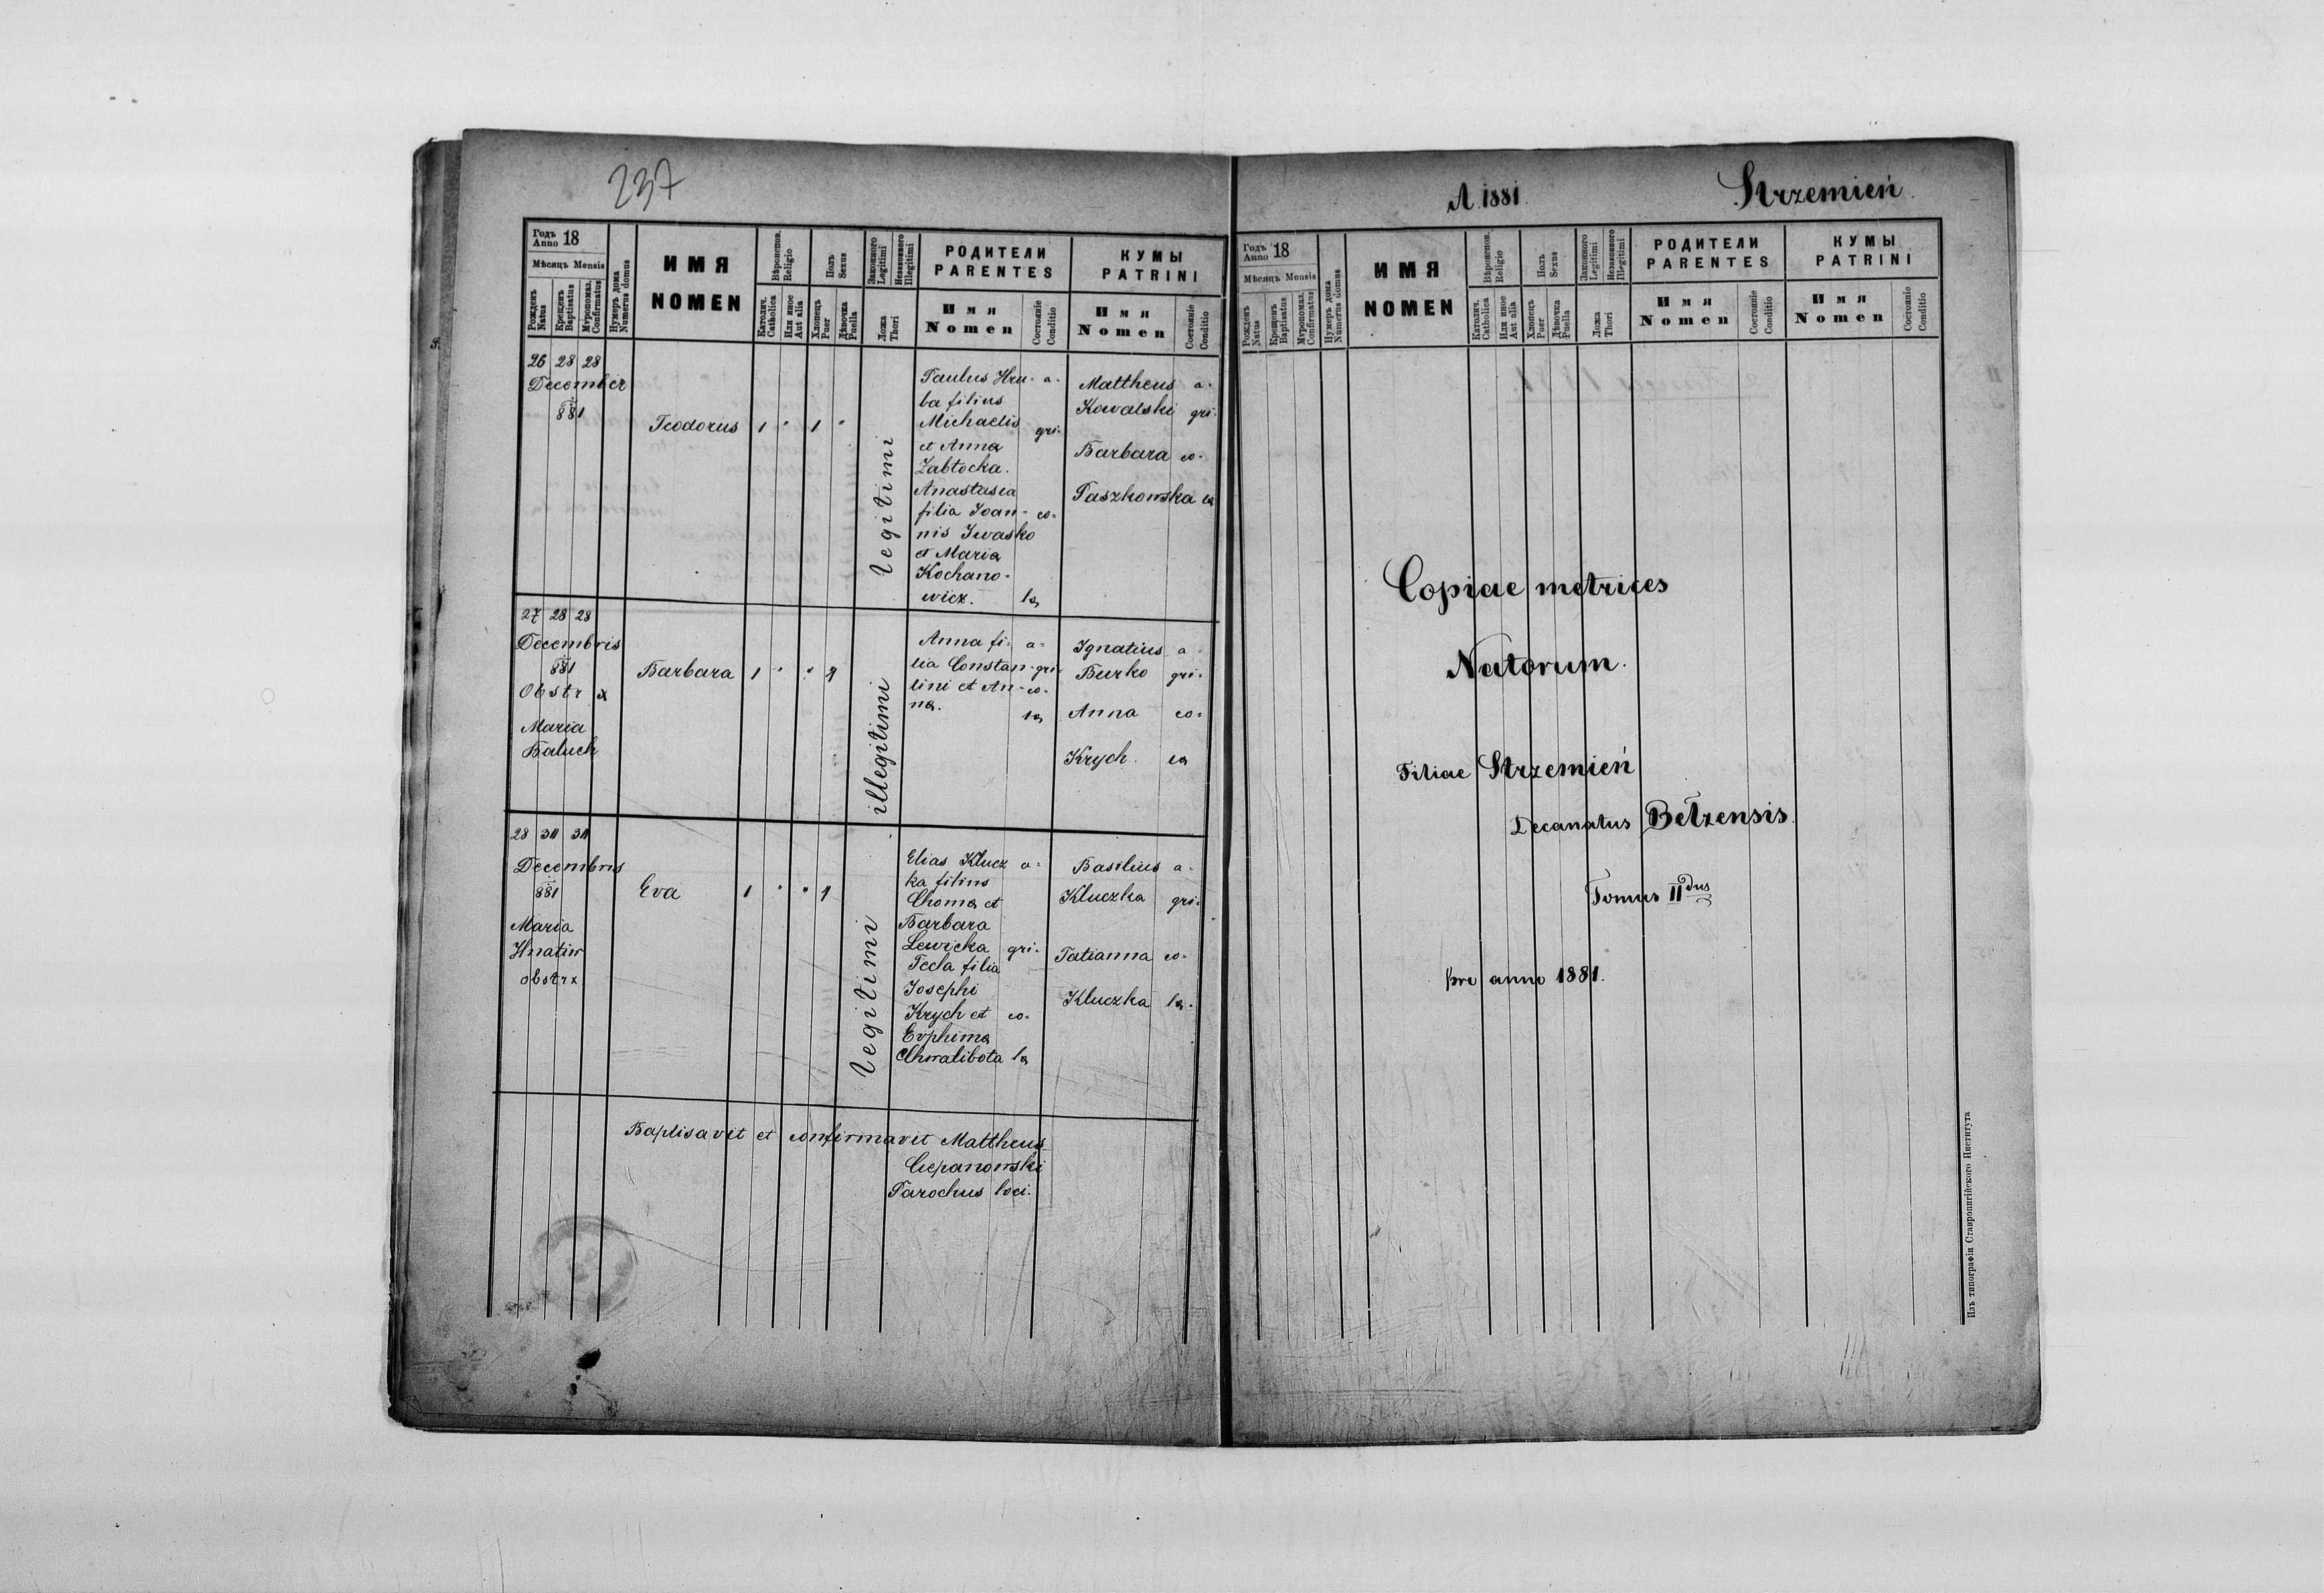 237
Годъ Anno 18
Мѣсяцъ Mensis
Рожденъ Natus
Крещенъ Baptisatus
Мѵропомаз. Confirmatus
Нумеръ дома Numerus domus
ИМЯ
NOMEN
Вѣроиспов. Religio
Католич. Catholica
Или иное Aut alia
Полъ Sexus
Хлопецъ Puer
Дѣвочка Puella
Законного Legitimi
Незаконного Illegitimi
Ложа Thori
РОДИТЕЛИ
PARENTES
Имя
Nomen
Состояніе Conditio
КУМЫ
PATRINI
Имя
Nomen
Состояніе Conditio
26 28 28
December
881
Teodorus 1 " 1 "
legitimi
Paulus Hru- a-
ba filius
Michaelis gri-
et Anna
Zabłocka.
Anastasia
filia Joan- co-
nis Iwasko
et Maria
Kochano-
wicz. la
Mattheus a-
Kowalski gri-
Barbara co-
Paszkowska la
27 28 28
Decembris
881
Obstr x
Maria
Baluch
Barbara 1 " " 1
illegitimi
Anna fi- a-
lia Constan- gri-
tini et An- co-
na. la
Ignatius a-
Burko gri-
Anna co-
Krych. la
28 31 31
Decembris
881
Maria
Hnatiw
obstrx
Eva 1 " " 1
legitimi
Elias Klucz a-
ka filius
Choma et
Barbara
Lewicka gri-
Tecla filia
Josephi
Krych et co-
Evphima
Chwalibota la
Basilius a-
Kluczka gri-
Tatianna co-
Kluczka la-
Baptisavit et confirmavit Mattheus
Czepanowski
Parochus loci.
A 1881. Strzemień
Годъ Anno 18
Мѣсяцъ Mensis
Рожденъ Natus
Крещенъ Baptisatus
Мѵропомаз. Confirmatus
Нумеръ дома Numerus domus
ИМЯ
NOMEN
Вѣроиспов. Religio
Католич. Catholica
Или иное Aut alia
Полъ Sexus
Хлопецъ Puer
Дѣвочка Puella
Законного Legitimi
Незаконного Illegitimi
Ложа Thori
РОДИТЕЛИ
PARENTES
Имя
Nomen
Состояніе Conditio
КУМЫ
PATRINI
Имя
Nomen
Состояніе Conditio
Copiae metrices
Natorum.
Filiae Strzemień
Decanatus Bełzensis.
Tomus II dus
pro anno 1881.
Изъ типографіи Ставропигійского Института